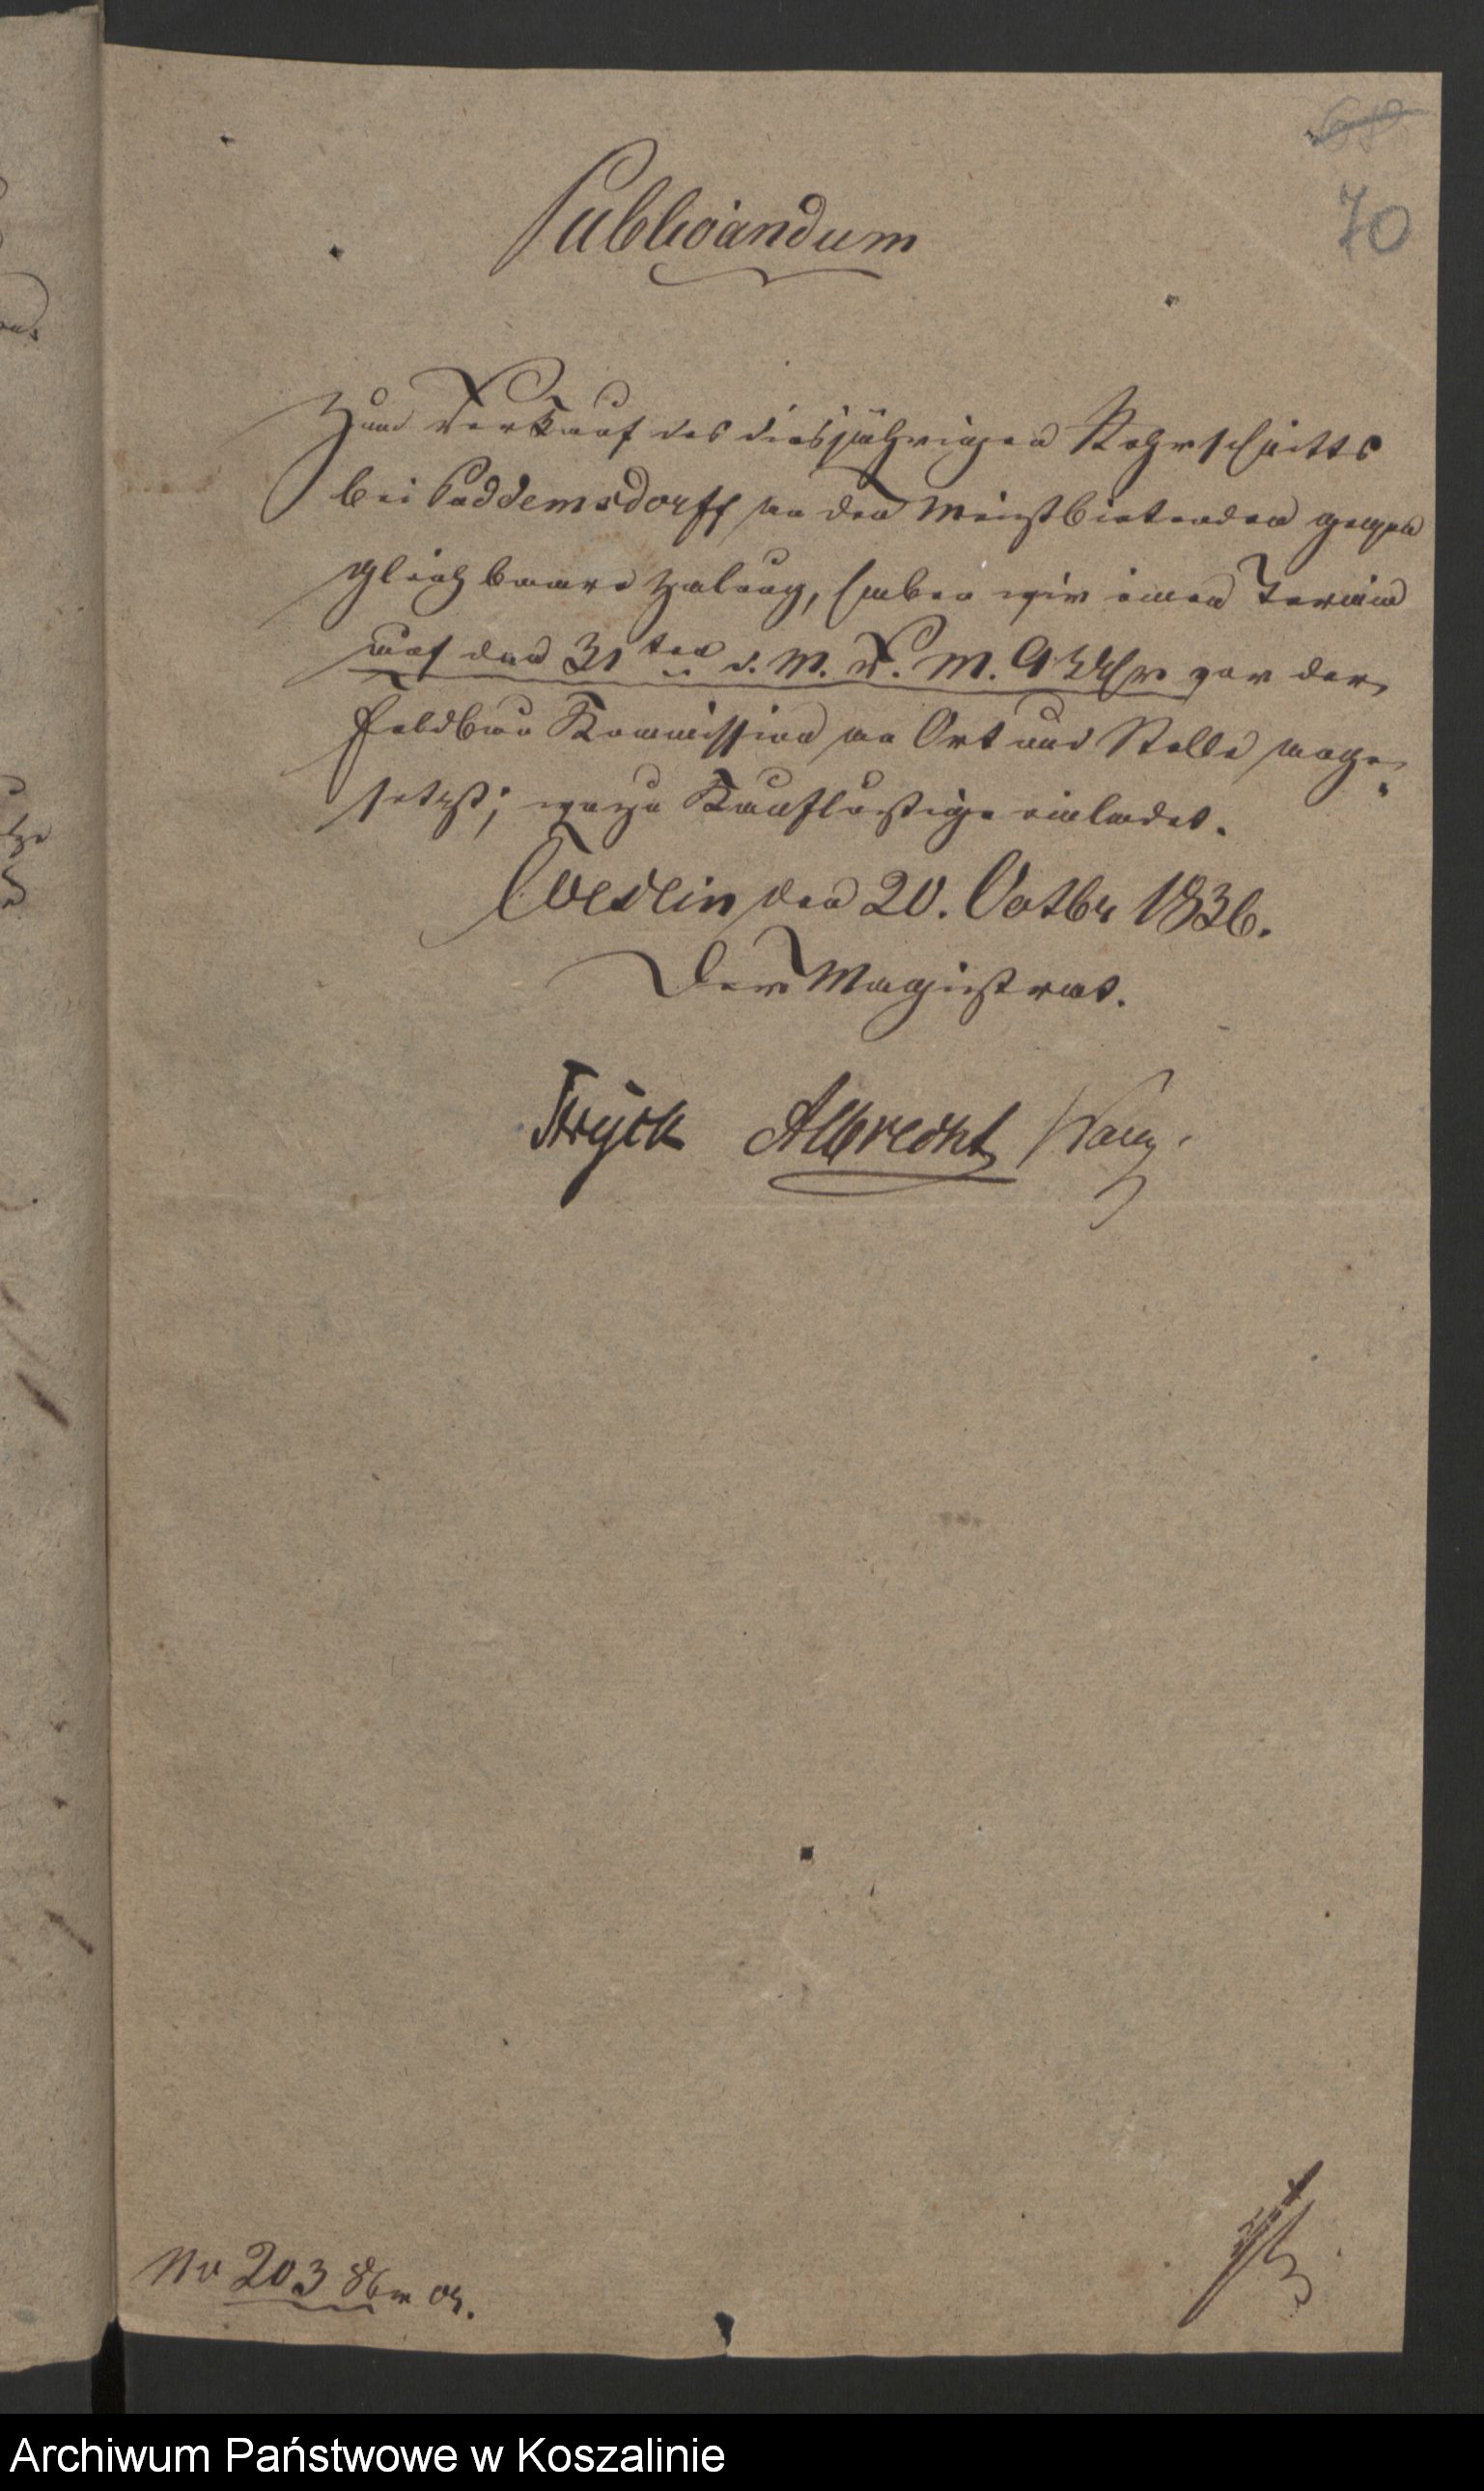 70
Publicandum
Zum Verkauf des diesjährigen Rohrschnitts
bei Puddemsdorff an den Meistbietenden gegen
gleich baare Zalung, haben wir einen Termin
auf den 31ten d. M. V. M. 9 Uhr vor der
Feldbau Kommission an Ort und Stelle ange-
setzt; wozu Kauflustige einladet.
Coeslin den 20. Octbr 1836.
Der Magistrat.
Stryck Albrecht
No 203 8br
Archiwum Państwowe w Koszalinie